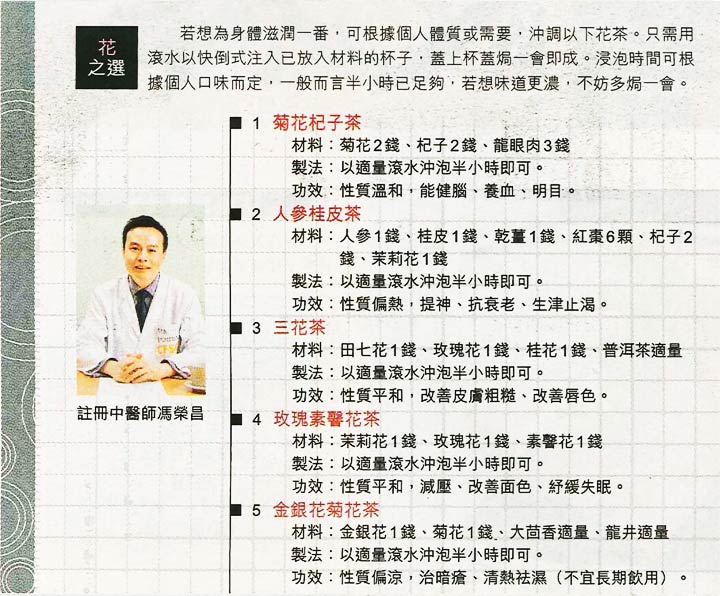 花
之選
若想為身體滋潤一番，可根據個人體質或需要，沖調以下花茶。只需用
滾水以快倒式注入已放入材料的杯子，蓋上杯蓋焗一會即成。浸泡時間可根
據個人口味而定，一般而言半小時已足夠，若想味道更濃，不妨多焗一會。
■ 1 菊花杞子茶
材料：菊花2錢、杞子2錢、龍眼肉3錢
製法：以適量滾水沖泡半小時即可。
功效：性質溫和，能健腦、養血、明目。
■ 2 人參桂皮茶
材料：人參1錢、桂皮1錢、乾薑1錢、紅棗6顆、杞子2
錢、茉莉花1錢
製法：以適量滾水沖泡半小時即可。
功效：性質偏熱，提神、抗衰老、生津止渴。
■ 3 三花茶
材料：田七花1錢、玫瑰花1錢、桂花1錢、普洱茶適量
製法：以適量滾水沖泡半小時即可。
功效：性質平和，改善皮膚粗糙、改善唇色。
註冊中醫師馮榮昌
■ 4 玫瑰素馨花茶
材料：茉莉花1錢、玫瑰花1錢、素馨花1錢
製法：以適量滾水沖泡半小時即可。
功效：性質平和，減壓、改善面色、紓緩失眠。
■ 5 金銀花菊花茶
材料：金銀花1錢、菊花1錢、大茴香適量、龍井適量
製法：以適量滾水沖泡半小時即可。
功效：性質偏涼，治暗瘡、清熱祛濕（不宜長期飲用）。